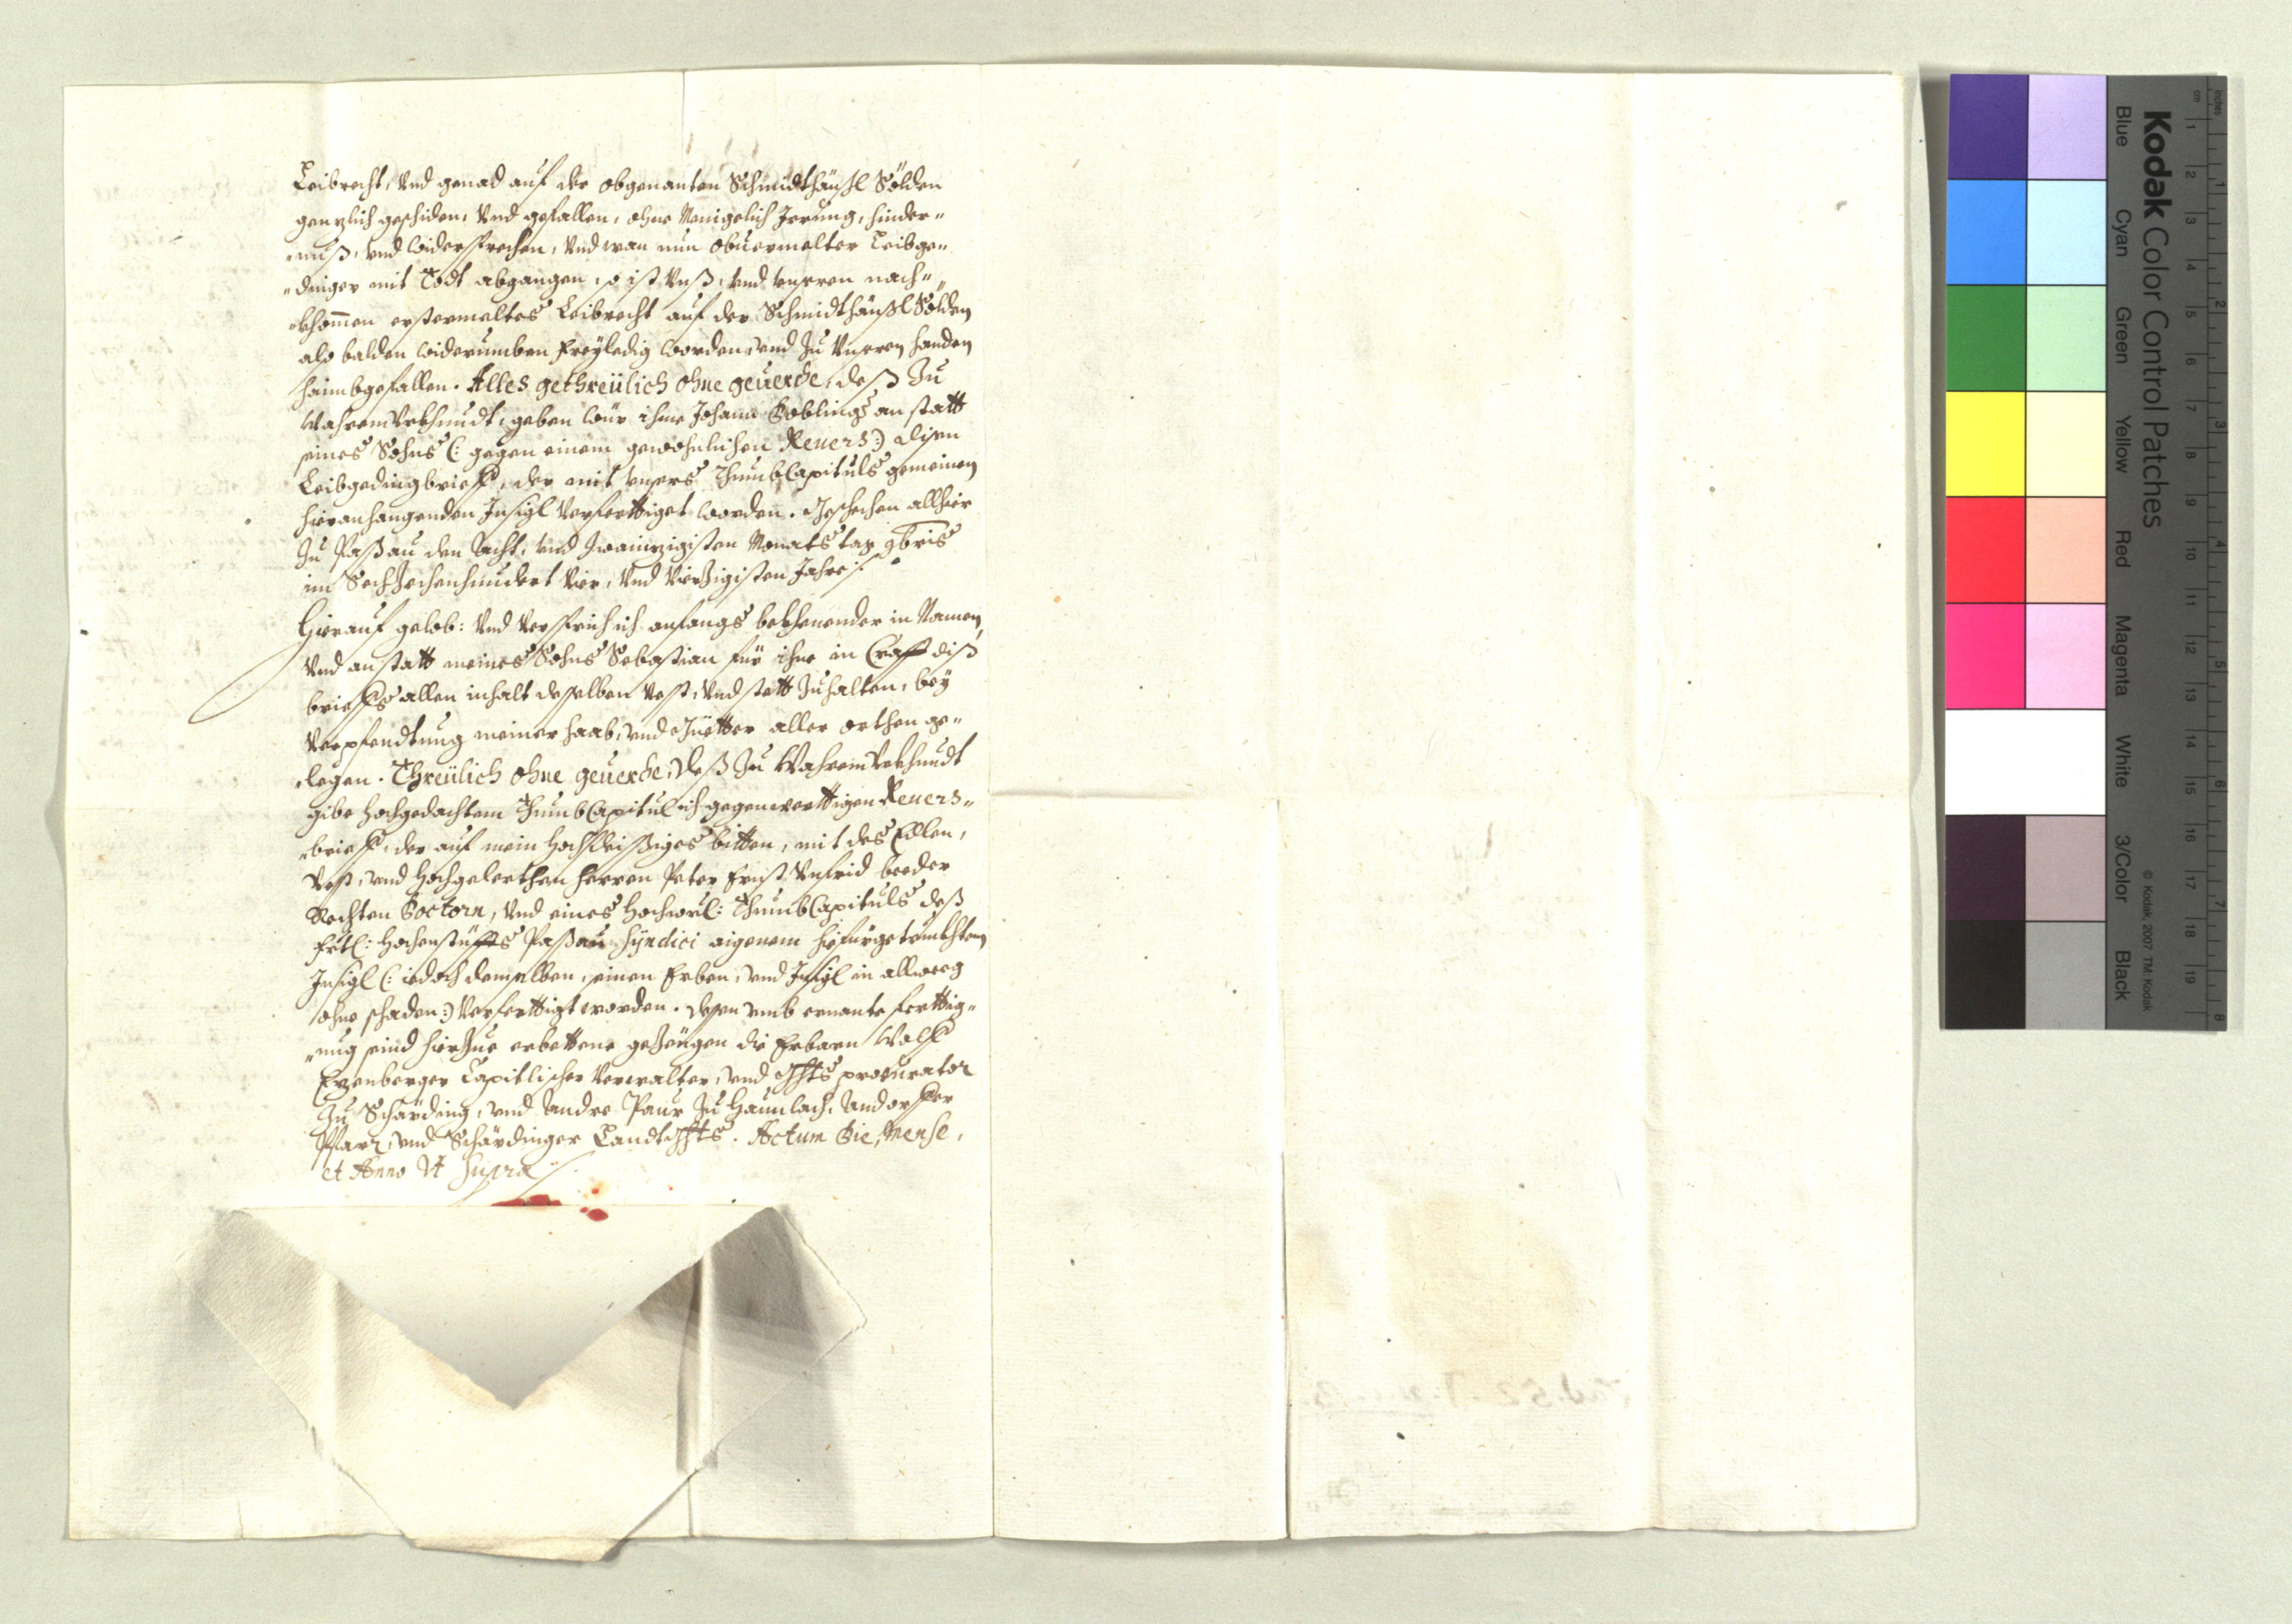 Leibrecht, Vnd genad auf der obgenanten Schmidthäußl Sölden
genzlich geschiden, Vnd gefallen, ohne Menigelich Irrung, hinder„
„nuß, vnd widersprechen, Vnd wan nun obuermelter Leibge„
„dinger mit Todt abgangen, so ist Vnß, vnd vnseren nach„
„khom̅en erstermeltes Leibrecht auf der Schmidthäußl Sölden
also balden widerumben freyledig worden, vnd zu Vnseren handen
haimbgefallen. Alles gethreülich ohne geuerde, deß Zu
Wahrem Vrkhundt, geben wür ihme Johann Doblings an statt
seines Sohns (: gegen einem gewohnlichen Reuers:) disen
Leibgedingbrieff, der mit vnsers Thumb Capituls gemeinen
hieranhangenden Insigl Verferttiget worden. Geschehen allhier
Zu Paßau den Acht, vnd Zwainzigisten Monats tag 9bris
im Sechzechenhundert Vier, Vnd Vierzigisten Jahre ./.
Hierauf gelob: Vnd Versprich ich anfangs bekhenender in Namen
Vnd anstatt meines Sohns Sebastian für ihne in Crafft diß
brieffs allen inhalt desselben Vest, Vnd stett Zuhalten, bey
Verpfendtung meiner haab, vnd Guetter aller orthen ge„
„legen. Threülich ohne geuerde, deß Zu Wahrem Vrkhundt
gibe hochgedachtem Thumb Capitul ich gegenwerttigen Reuers„
„brieff, der auf mein hochfleißiges bitten, mit des Edlen,
Vest, vnd Hochgelerthen herren Peter Ernst Vnfrid beeder
Rechten Doctorn, Vnd eines Hochwürl: Thumb Capituls deß
Frtl: Hochenstüffts Paßau Syndici aigenem hiefürgetrukhtem
Insigl (: iedoch demselben, seinen Erben, vnd Insigl in allweeg
ohne schaden:) Verferttigt worden. dessen vmb ernante ferttig„
„ung seind hierzue erbettene gezeugen die Erbarn Wolff
Ezenberger Capitlischer Verwalter, vnd Ghts procurator
Zu Schärding, vnd Andre Paur Zu Haumlach, Andorffer
Pfarr, vnd Schärdinger Landtghts. Actum Die, Mense,
et Anno Vt Supra ./.
Kodak Color Control Patches
Blue Cyan Green Yellow Red Magenta White 3/Color Black
© Kodak, 2007 TM: Kodak
inches 1 2 3 4 5 6 7 8
cm 1 2 3 4 5 6 7 8 9 10 11 12 13 14 15 16 17 18 19